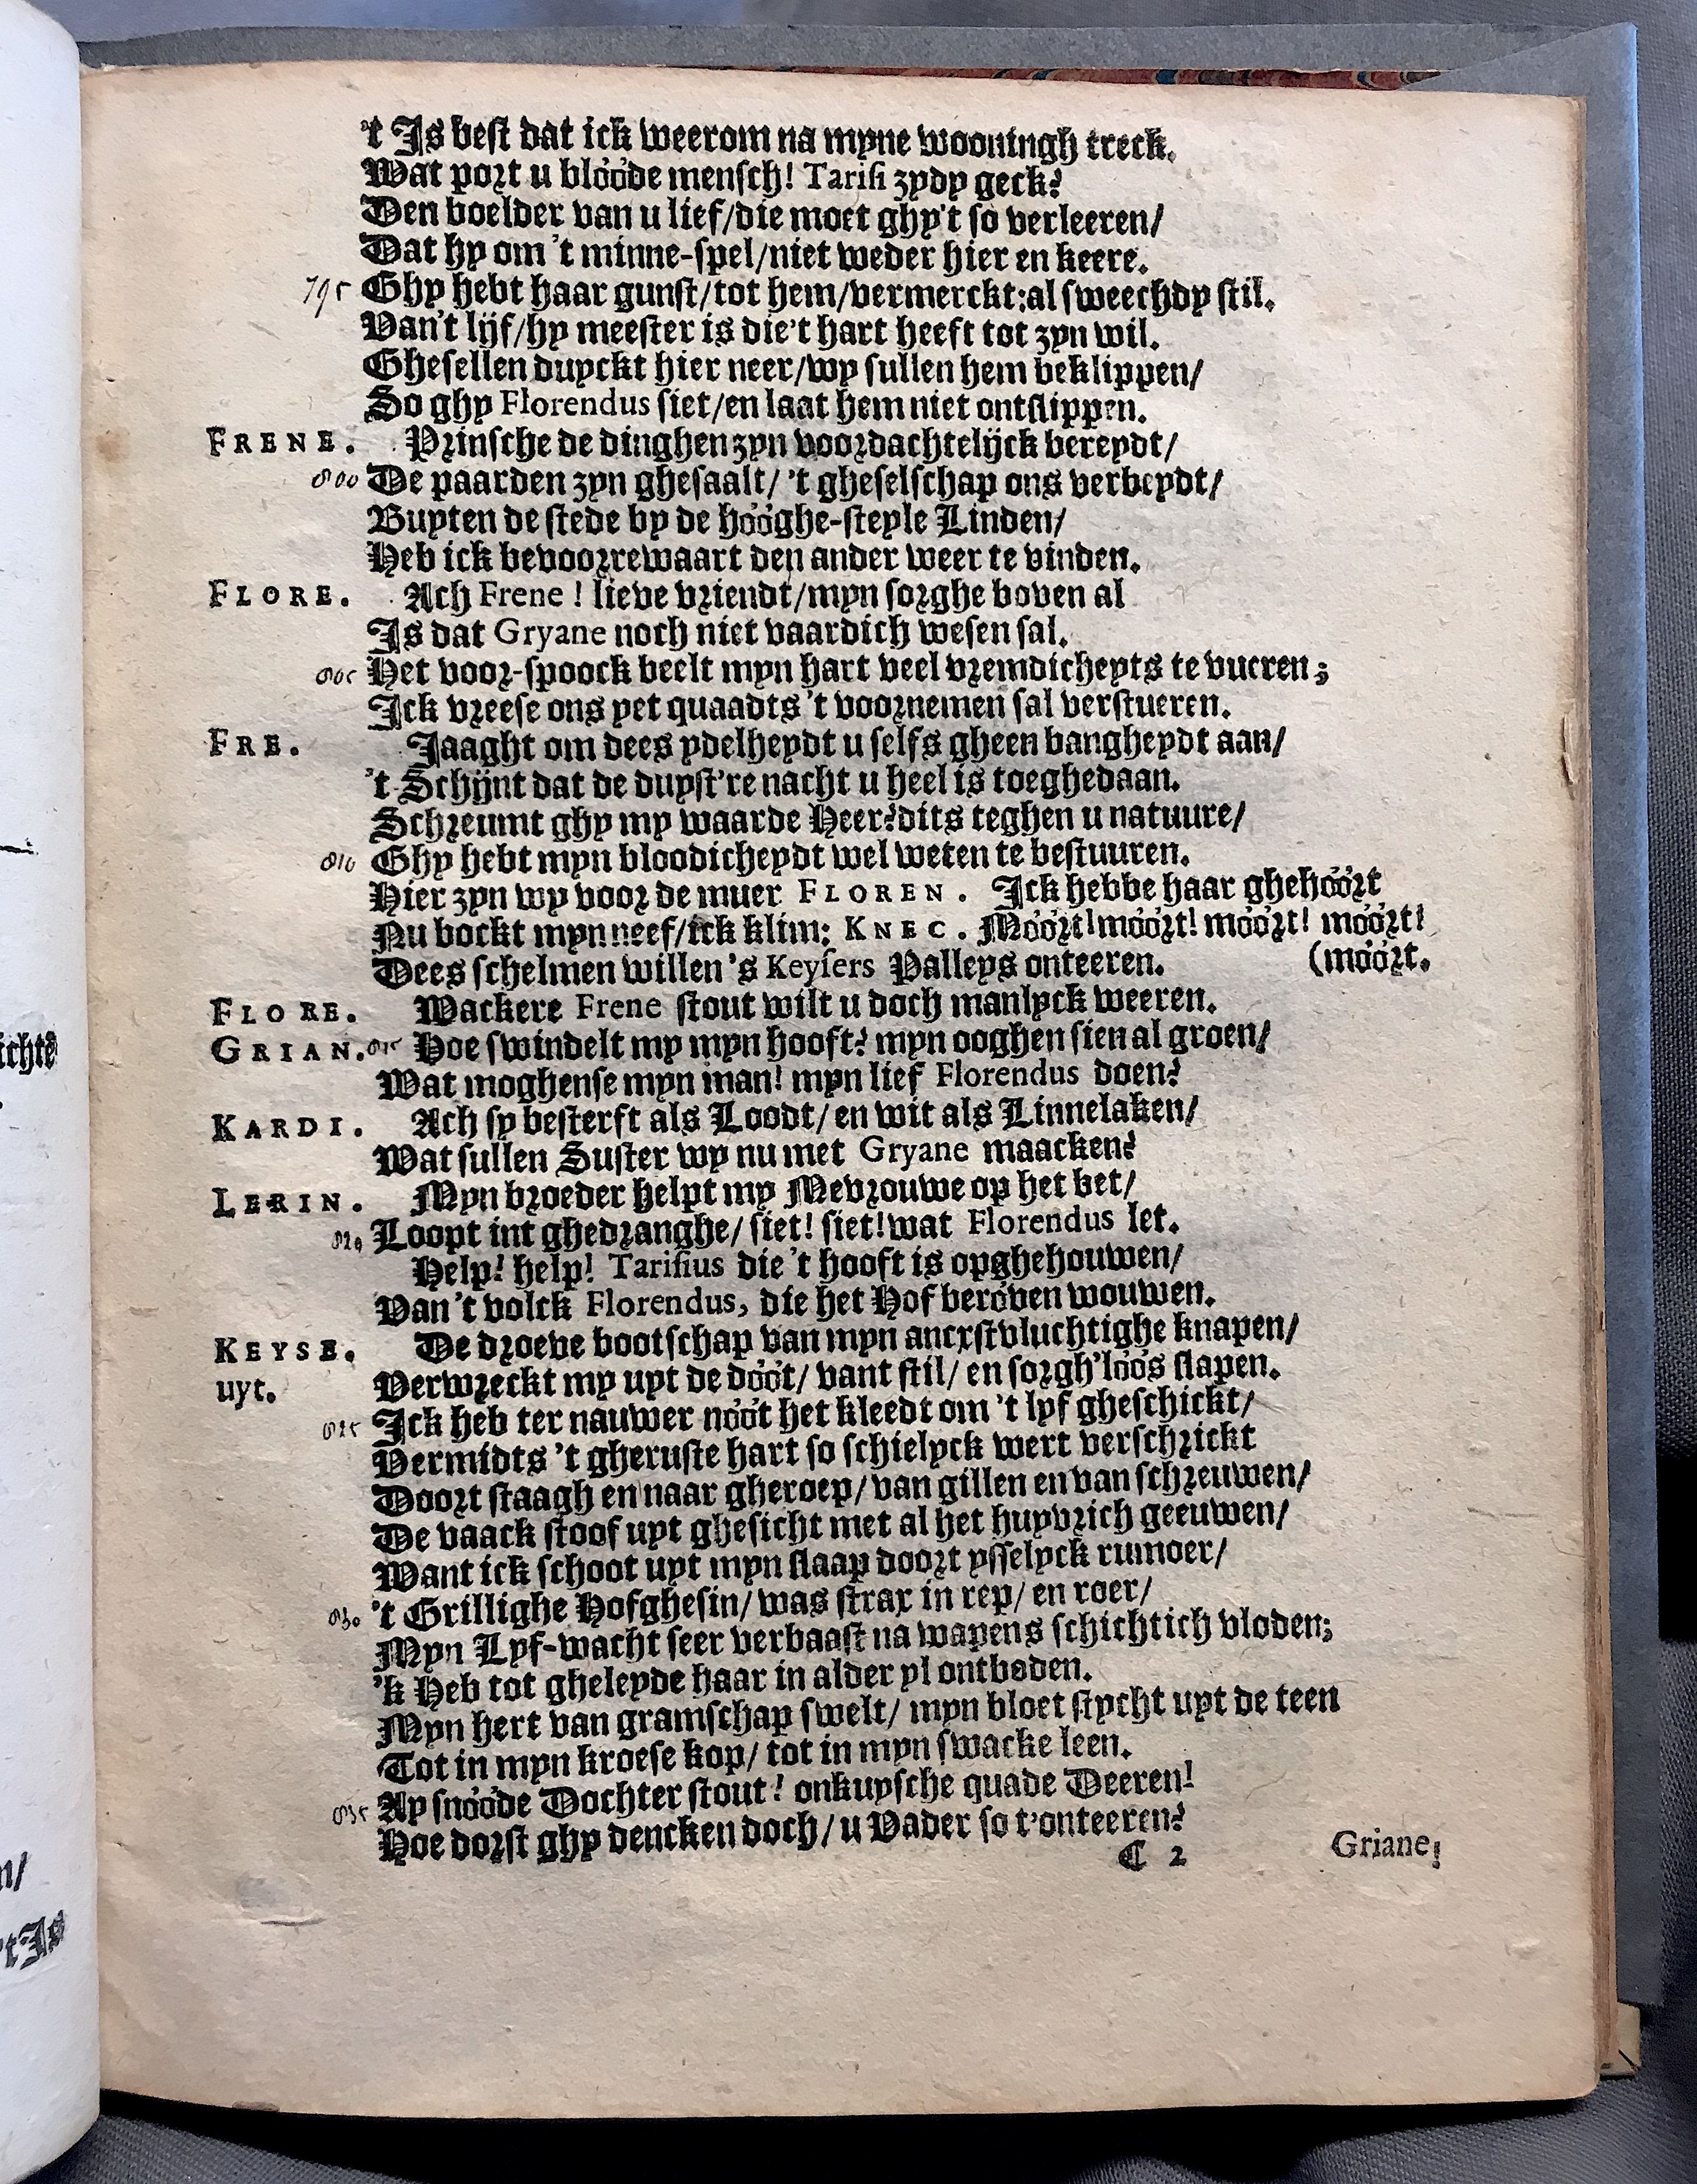 't Is best dat ick weerom na myne wooningh treck.
Wat port u blóóde mensch! Tarisi zydy geck?
Den boelder van u lief/die moet ghy't so verleeren/
Dat hy om 't minne-spel/niet weder hier en keere.
795 Ghy hebt haar gunst/tot hem/vermerckt:al sweechdy stil.
Van't lijf/hy meester is die't hart heeft tot zyn wil.
Ghesellen duyckt hier neer/wy sullen hem beklippen/
So ghy Florendus siet/en laat hem niet ontslippen.
FRENE. Prinsche de dinghen zyn voordachtelijck bereydt/
800 De paarden zyn ghesaalt/ 't gheselschap ons verbeydt/
Buyten de stede by de hóóghe-steyle Linden/
Heb ick bevoorrewaart den ander weer te vinden.
FLORE. Ach Frene ! lieve vriendt/myn sorghe boven al
Is dat Gryane noch niet vaardich wesen sal.
805 Het voor-spoock beelt myn hart veel vremdicheyts te vueren;
Ick vreese ons yet quaadts 't voornemen sal verstueren.
FRE. Jaaght om dees ydelheydt u selfs gheen bangheydt aan/
't Schijnt dat de duyst're nacht u heel is toeghedaan.
Schreumt ghy my waarde Heer?dits teghen u natuure/
810 Ghy hebt myn bloodicheydt wel weten te bestuuren.
Hier zyn wy voor de muer FLOREN. Ick hebbe haar ghehóórt
Nu bockt myn neef/ick klim: KNEC. Móórt!móórt! móórt! móórt!
Dees schelmen willen 's Keysers Palleys onteeren. (móórt.
FLORE. Wackere Frene stout wilt u doch manlyck weeren.
GRIAN. 815 Hoe swindelt my myn hooft? myn ooghen sien al groen/
Wat moghense myn man! myn lief Florendus doen?
KARDI. Ach sy besterft als Loodt/ en wit als Linnelaken/
Wat sullen Suster wy nu met Gryane maacken?
LERIN. Myn broeder helpt my Mevrouwe op het bet/
820 Loopt int ghedranghe/ siet! siet!wat Florendus let.
Help! help! Tarisius die 't hooft is opghehouwen/
Van 't volck Florendus, die het Hof beróven wouwen.
KEYSE. De droeve bootschap van myn ancxstvluchtighe knapen/
uyt. Verwreckt my uyt de dóót/ vant stil/ en sorgh'lóós slapen.
825 Ick heb ter nauwer nóót het kleedt om 't lyf gheschickt/
Vermidts 't gheruste hart so schielyck wert verschrickt
Doort staagh en naar gheroep/ van gillen en van schreuwen/
De vaack stoof uyt ghesicht met al het huyvrich geeuwen/
Want ick schoot uyt myn slaap doort ysselyck rumoer/
830 't Grillighe Hofghesin/ was strax in rep/ en roer/
Myn Lyf-wacht seer verbaast na wapens schichtich vloden;
'k Heb tot gheleyde haar in alder yl ontboden.
Myn hert van gramschap swelt/ myn bloet stycht uyt de teen
Tot in myn kroese kop/ tot in myn swacke leen.
835 Ay snóóde Dochter stout! onkuysche quade Deeren!
Hoe dorst ghy dencken doch/ u Vader so t'onteeren?
C 2 Griane!